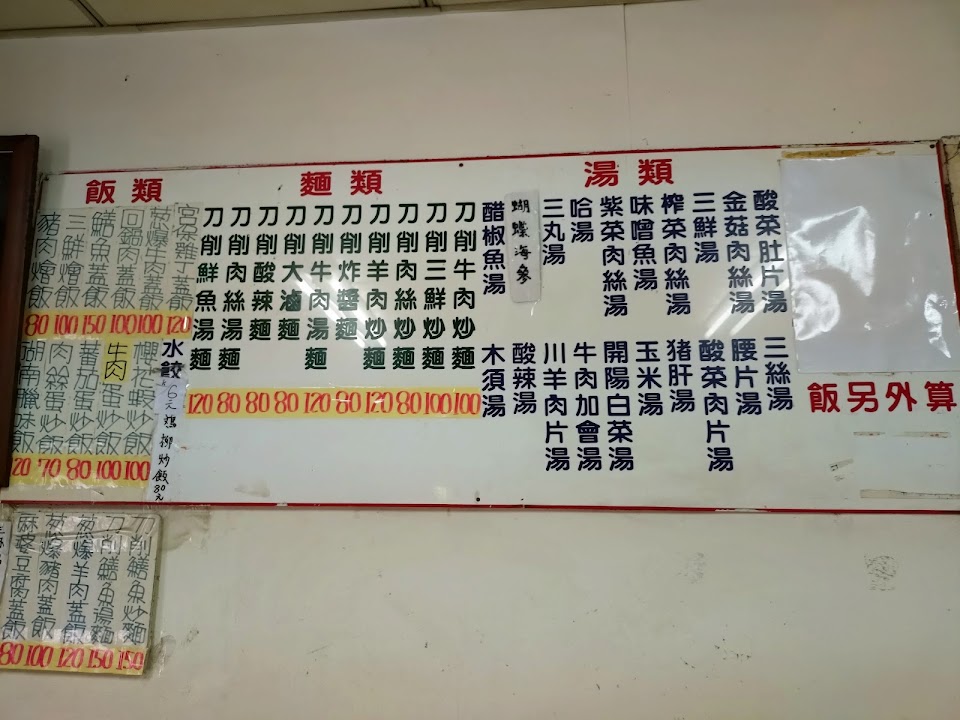 飯類
豬肉燴飯 80
三鮮燴飯 100
鱔魚蓋飯 150
回鍋肉蓋飯 100
蔥爆牛肉蓋飯 100
宮保雞丁蓋飯 120
湖南臘味飯 120
肉絲炒飯 70
蕃茄蛋炒飯 80
牛肉蛋炒飯 100
櫻花蝦炒飯 100
水餃 6元
雞柳炒飯 80元
麵類
刀削鮮魚湯麵 120
刀削肉絲湯麵 80
刀削酸辣麵 80
刀削大滷麵 80
刀削牛肉湯麵 120
刀削炸醬麵 80
刀削羊肉炒麵 120
刀削肉絲炒麵 80
刀削三鮮炒麵 100
刀削牛肉炒麵 100
湯類
醋椒魚湯
蝴蝶海參
三丸湯
哈湯
紫菜肉絲湯
味噌魚湯
榨菜肉絲湯
三鮮湯
金菇肉絲湯
酸菜肚片湯
木須湯
酸辣湯
川羊肉片湯
牛肉加會湯
開陽白菜湯
玉米湯
豬肝湯
酸菜肉片湯
腰片湯
三絲湯
飯另外算
麻婆豆腐蓋飯 80
蔥爆豬肉蓋飯 100
蔥爆羊肉蓋飯 120
刀削鱔魚湯麵 150
刀削鱔魚炒麵 150